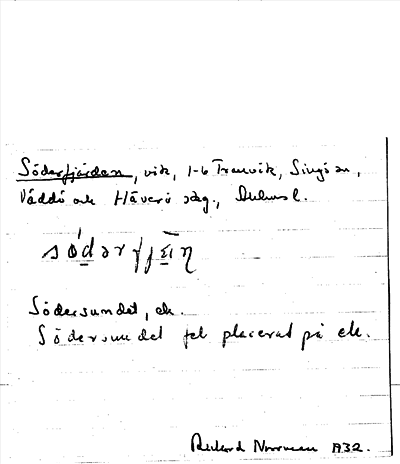 Söderfjärden, vik, 1-6 Tranvik, Singö sn,
Väddö och Häverö skg.,
Södersundet, ek.
Södersundet fel placerat på ek.
Rickard Norrman 1932.